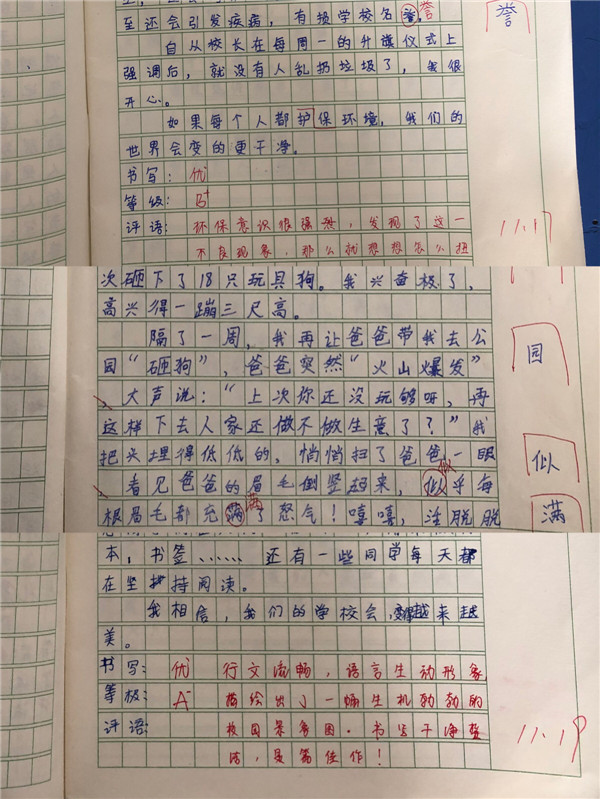 至还会引发疾病，有损学校名誉。
誉
誉
自从校长在每周一的升旗仪式上
强调后，就没有人乱扔垃圾了，我很
开心。
如果每个人都护保环境，我们的
世界会变的更干净。
书写：优
等级：B+
评语：环保意识很强烈，发现了这一
不良现象，那么就想想怎么扭
11.17
次砸下了18只玩具狗。我兴奋极了，
高兴得一蹦三尺高。
隔了一周，我再让爸爸带我去公
园“砸狗”，爸爸突然“火山爆发”
园
大声说：“上次你还没玩够呀，再
这样下去人家还做不做生意了？”我
把头埋得低低的，悄悄扫了爸爸一眼
看见爸爸的眉毛倒竖起来，似乎每
似
似
根眉毛都充满了怒气！嘻嘻，活脱脱
满
满
本，书签……还有一些同学每天都
在坚持阅读。
我相信，我们的学校会变得越来越
美。
书写：优 行文流畅，语言生动形象
等级：A- 描绘出了一幅生机勃勃的
评语：校园景象图。书写干净整
洁，是篇佳作！
11.19